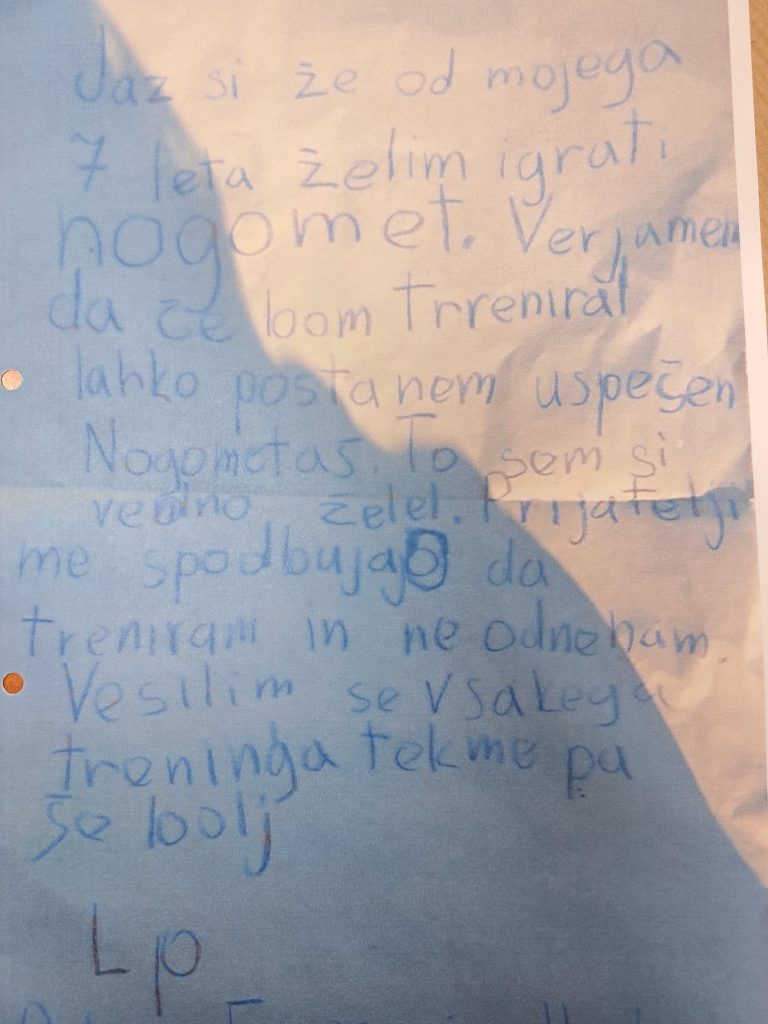 Jaz si že od mojega
7 leta želim igrati
nogomet. Verjamem
da če bom trreniral
lahko postanem uspešen
Nogometaš. To sem si
vedno želel. Prijatelji
me spodbujajo da
treniram in ne odneham.
Vesilim se vsakega
treninga tekme pa
še bolj
Lp